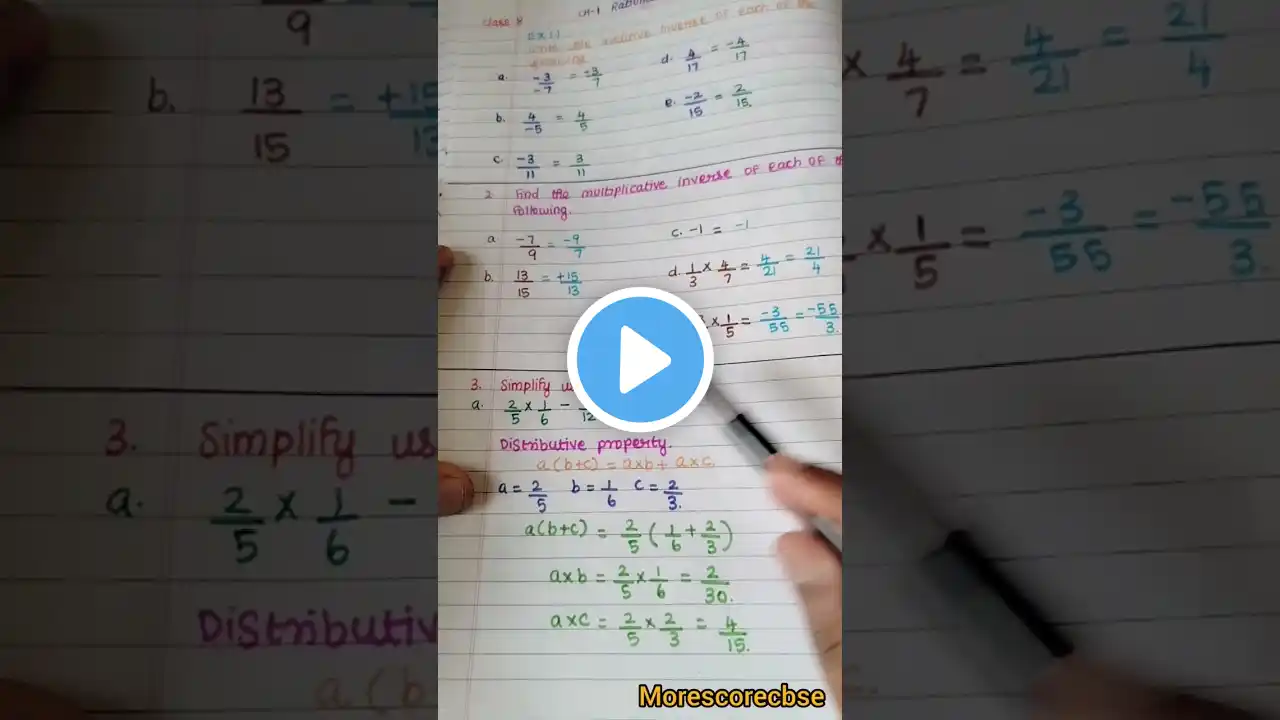 class 8 CH-1 Rational
EX 1.1
additive inverse of each of the
following
a. -3/-7 = -3/7
d. 4/17 = -4/17
b. 4/-5 = 4/5
e. -2/15 = 2/15.
c. -3/11 = 3/11
2 Find the multiplicative inverse of each of the
following.
a -7/9 = -9/7
c. -1 = -1
b. 13/15 = +15/13
d. 1/3 × 4/7 = 4/21 = 21/4
× 1/5 = -3/55 = -55/3.
3. Simplify us
a. 2/5 × 1/6 - 12
Distributive property.
a(b+c) = a×b + a×c.
a = 2/5 b = 1/6 c = 2/3.
a(b+c) = 2/5 (1/6 + 2/3)
a×b = 2/5 × 1/6 = 2/30.
a×c = 2/5 × 2/3 = 4/15.
Morescorecbse